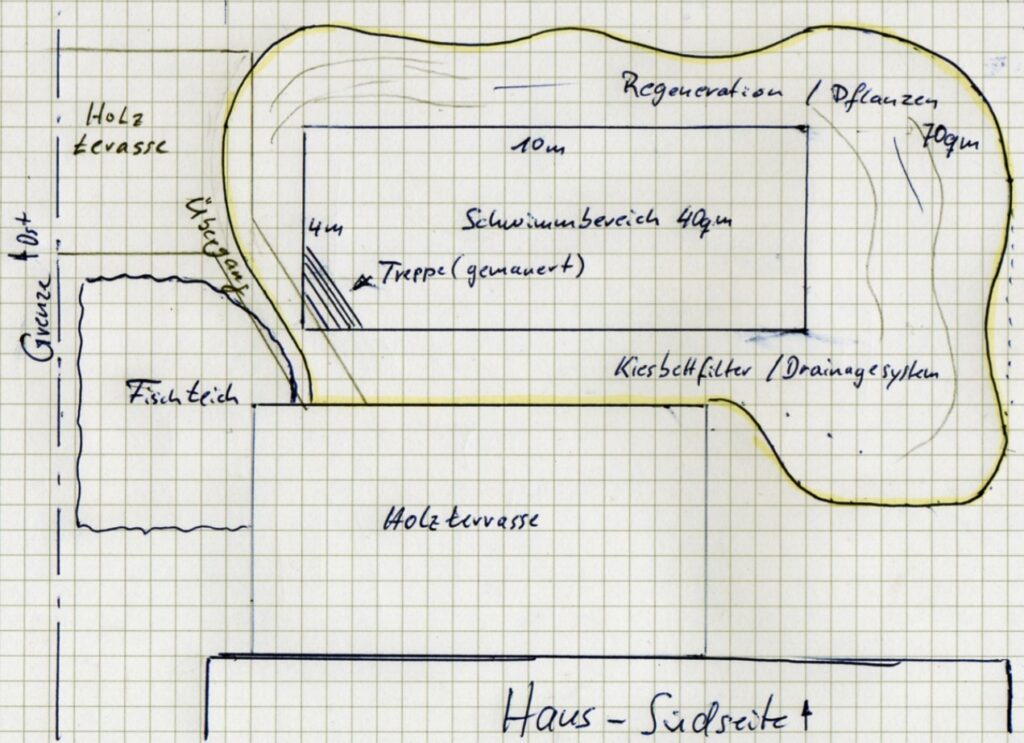 Regeneration / Pflanzen
70qm
Holz
terasse
10m
Übergang
4m
Schwimmbereich 40qm
Treppe (gemauert)
Grenze Ost
Kiesbettfilter / Drainagesystem
Fischteich
Holzterrasse
Haus - Südseite